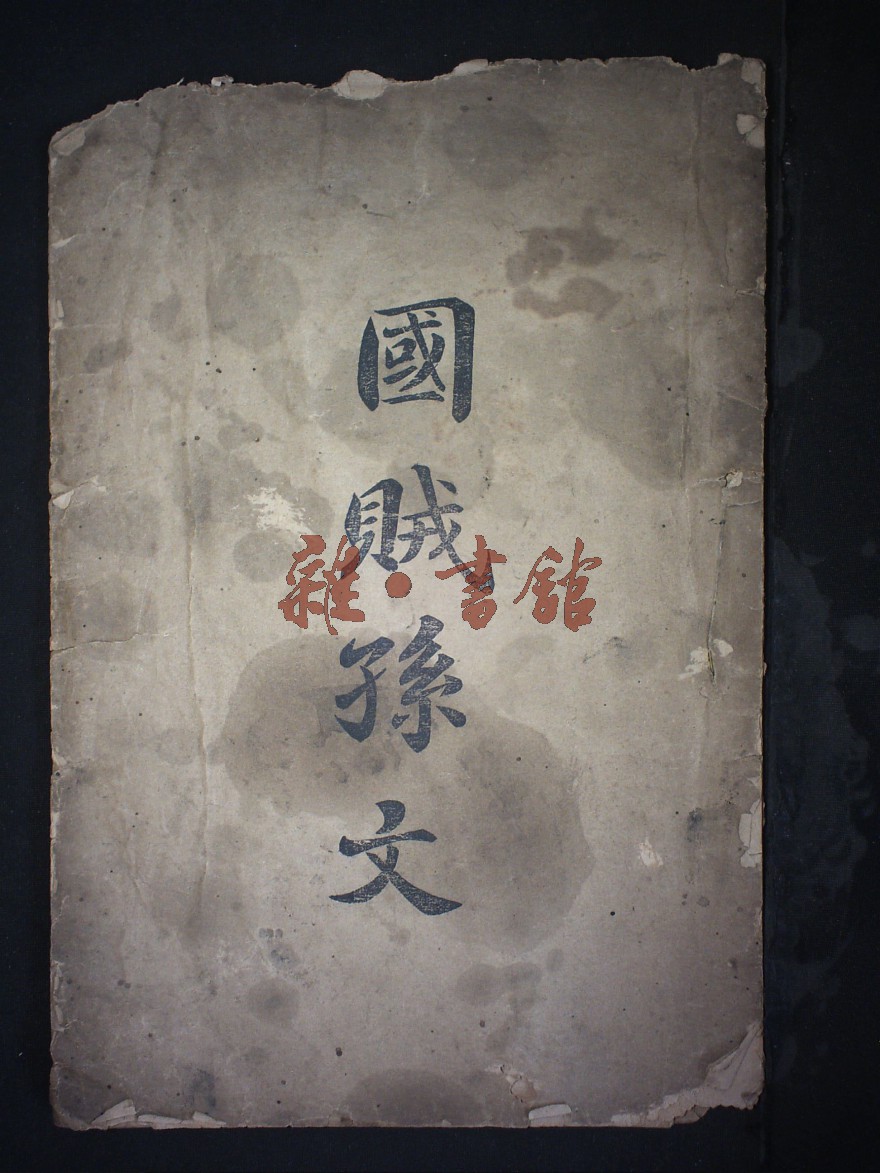 國賊孫文
雜·書館